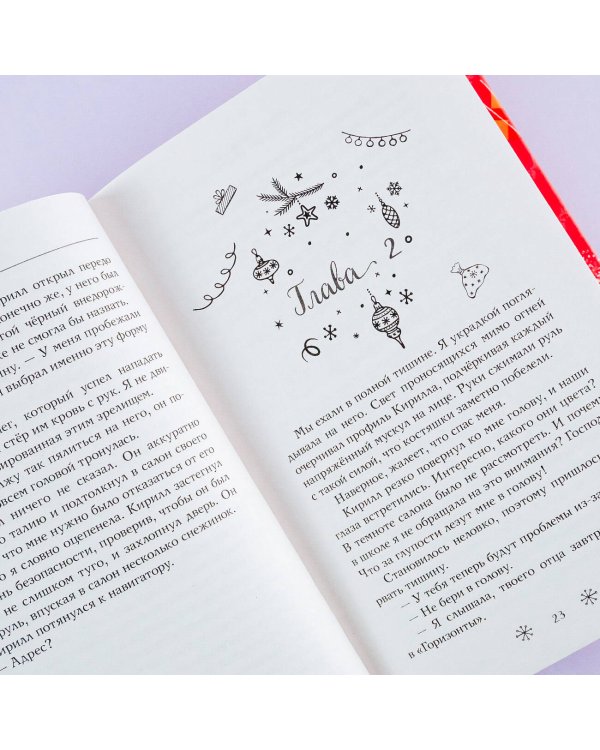 открыл передо
конечно же, у него был
чёрный внедорож-
же не смогла бы назвать.
— У меня пробежали
выбрал именно эту форму
который успел нападать
стёр им кровь с рук. Я не дви-
этим зрелищем.
так пялиться на него, он по-
всем головой тронулась.
ничего не сказал. Он аккуратно
талию и подтолкнул в салон своего
что мне нужно было отказаться от его
я словно оцепенела. Кирилл застегнул
безопасности, проверив, чтобы он был
не слишком туго, и захлопнул дверь. Он
впуская в салон несколько снежинок.
потянулся к навигатору.
— Адрес?
Глава 2
Мы ехали в полной тишине. Я украдкой погля-
дывала на него. Свет проносящихся мимо огней
очерчивал профиль Кирилла, подчёркивая каждый
напряжённый мускул на лице. Руки сжимали руль
с такой силой, что костяшки заметно побелели.
Наверное, жалеет, что спас меня.
Кирилл резко повернул ко мне голову, и наши
глаза встретились. Интересно, какого они цвета?
В темноте салона было не рассмотреть. И почему
в школе я не обращала на это внимания? Господ
Что за глупости лезут мне в голову!
Становилось неловко, поэтому пришлось
рвать тишину.
— У тебя теперь будут проблемы из-за
— Не бери в голову.
— Я слышала, твоего отца завтр
в «Горизонты».
23